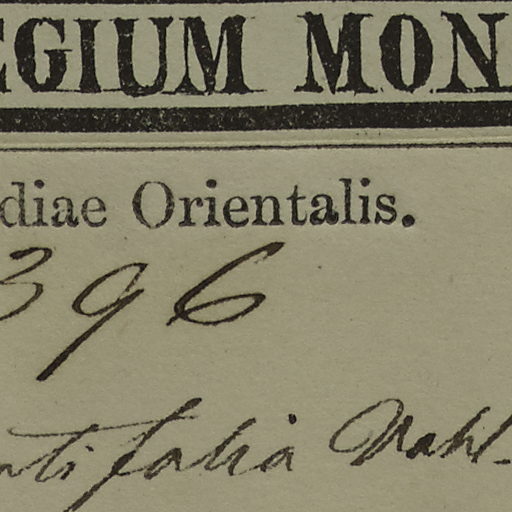 EGIUM MON
diae Orientalis.
396
ntifolia Vahl.